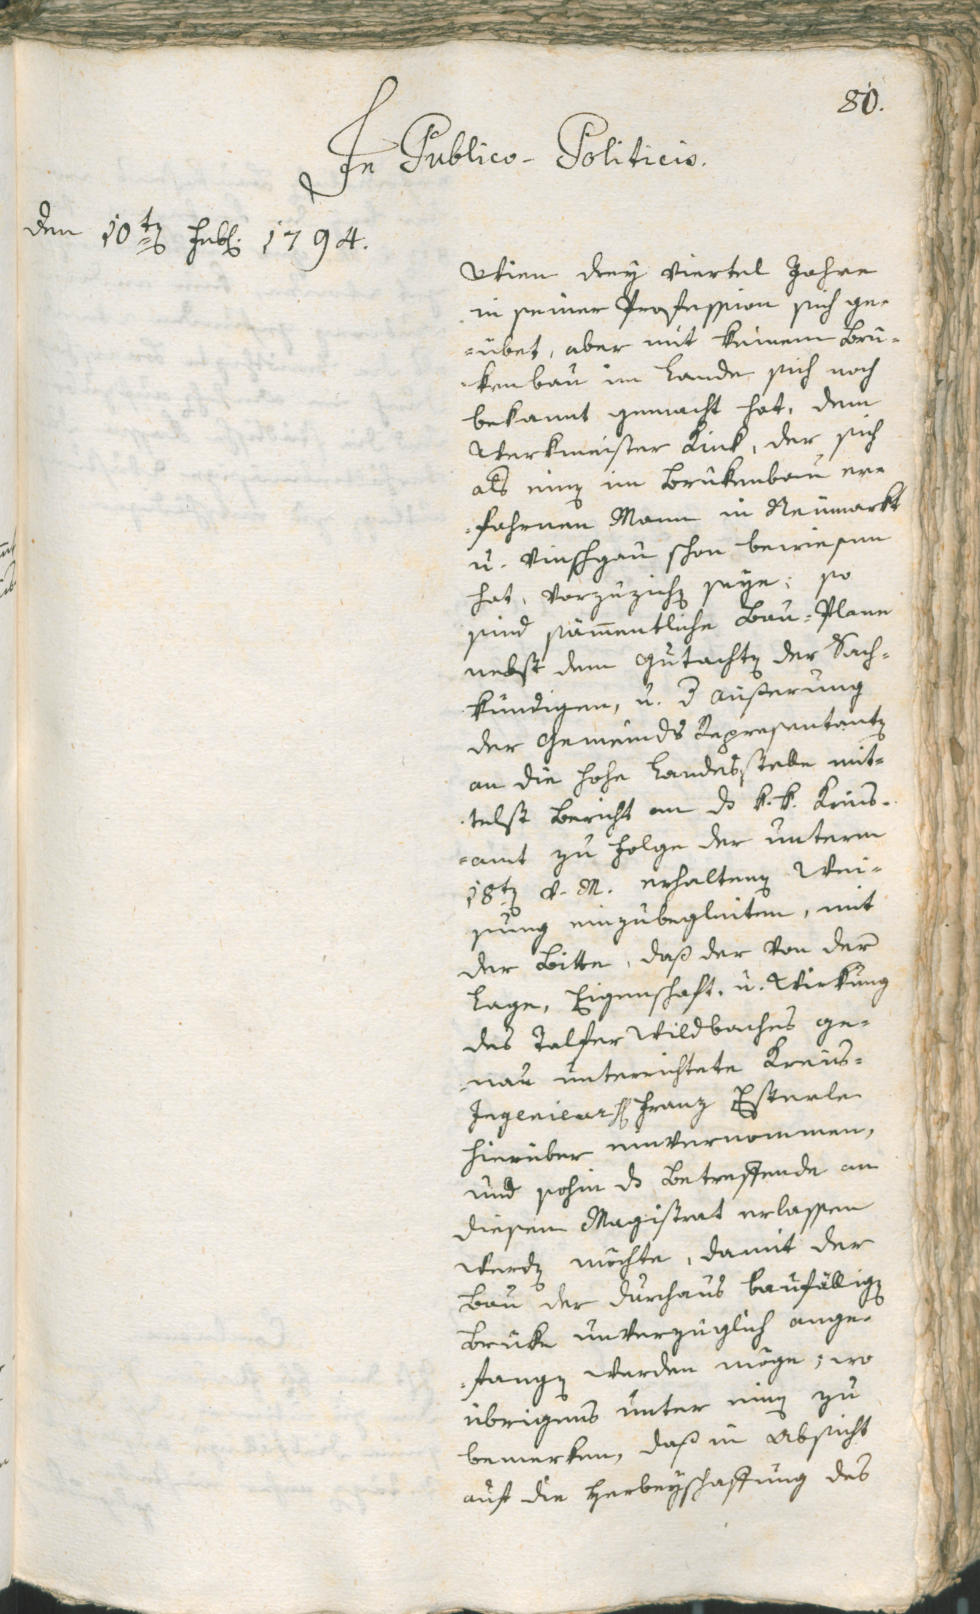 80.
In Publico-Politicis.
den 10ten Febr. 1794.
Wien drey viertel Jahre
in seiner Profession sich ge-
=übet, aber mit keinem Brü-
kenbau im Lande sich noch
bekannt gemacht hat, dem
Werkmeister Kink, der sich
als einen im Brükenbau er-
fahrnen Mann in Neumarkt
u. Vinschgau schon bewiesen
hat, vorzuziehen seye; so
sind sämmentliche Bau-Plane
nebst dem Gutachten der Sach-
kündigen, u. der Äußerung
der Gemeinds Representanten
an die hohe Landesstelle mit-
telst Bericht an das k. k. Kreis-
=amt zu Folge der unterm
18ten v. M. erhaltenen Wei-
sung einzubegleiten, mit
der Bitte, daß der von der
Lage, Eigenschaft, u. Wirkung
des Talfer Wildbaches ge-
nau unterrichtete Kreis-
Ingenieur H. Franz Esterle
hierüber einvernommen,
und sohin das Betreffende an
diesen Magistrat erlassen
werden möchte, damit der
Bau der durchaus baufälligen
Brüke unverzüglich ange-
fangen werden möge; wo
übrigens unter einen zu
bemerken, daß in Absicht
auf die Herbeyschaffung des